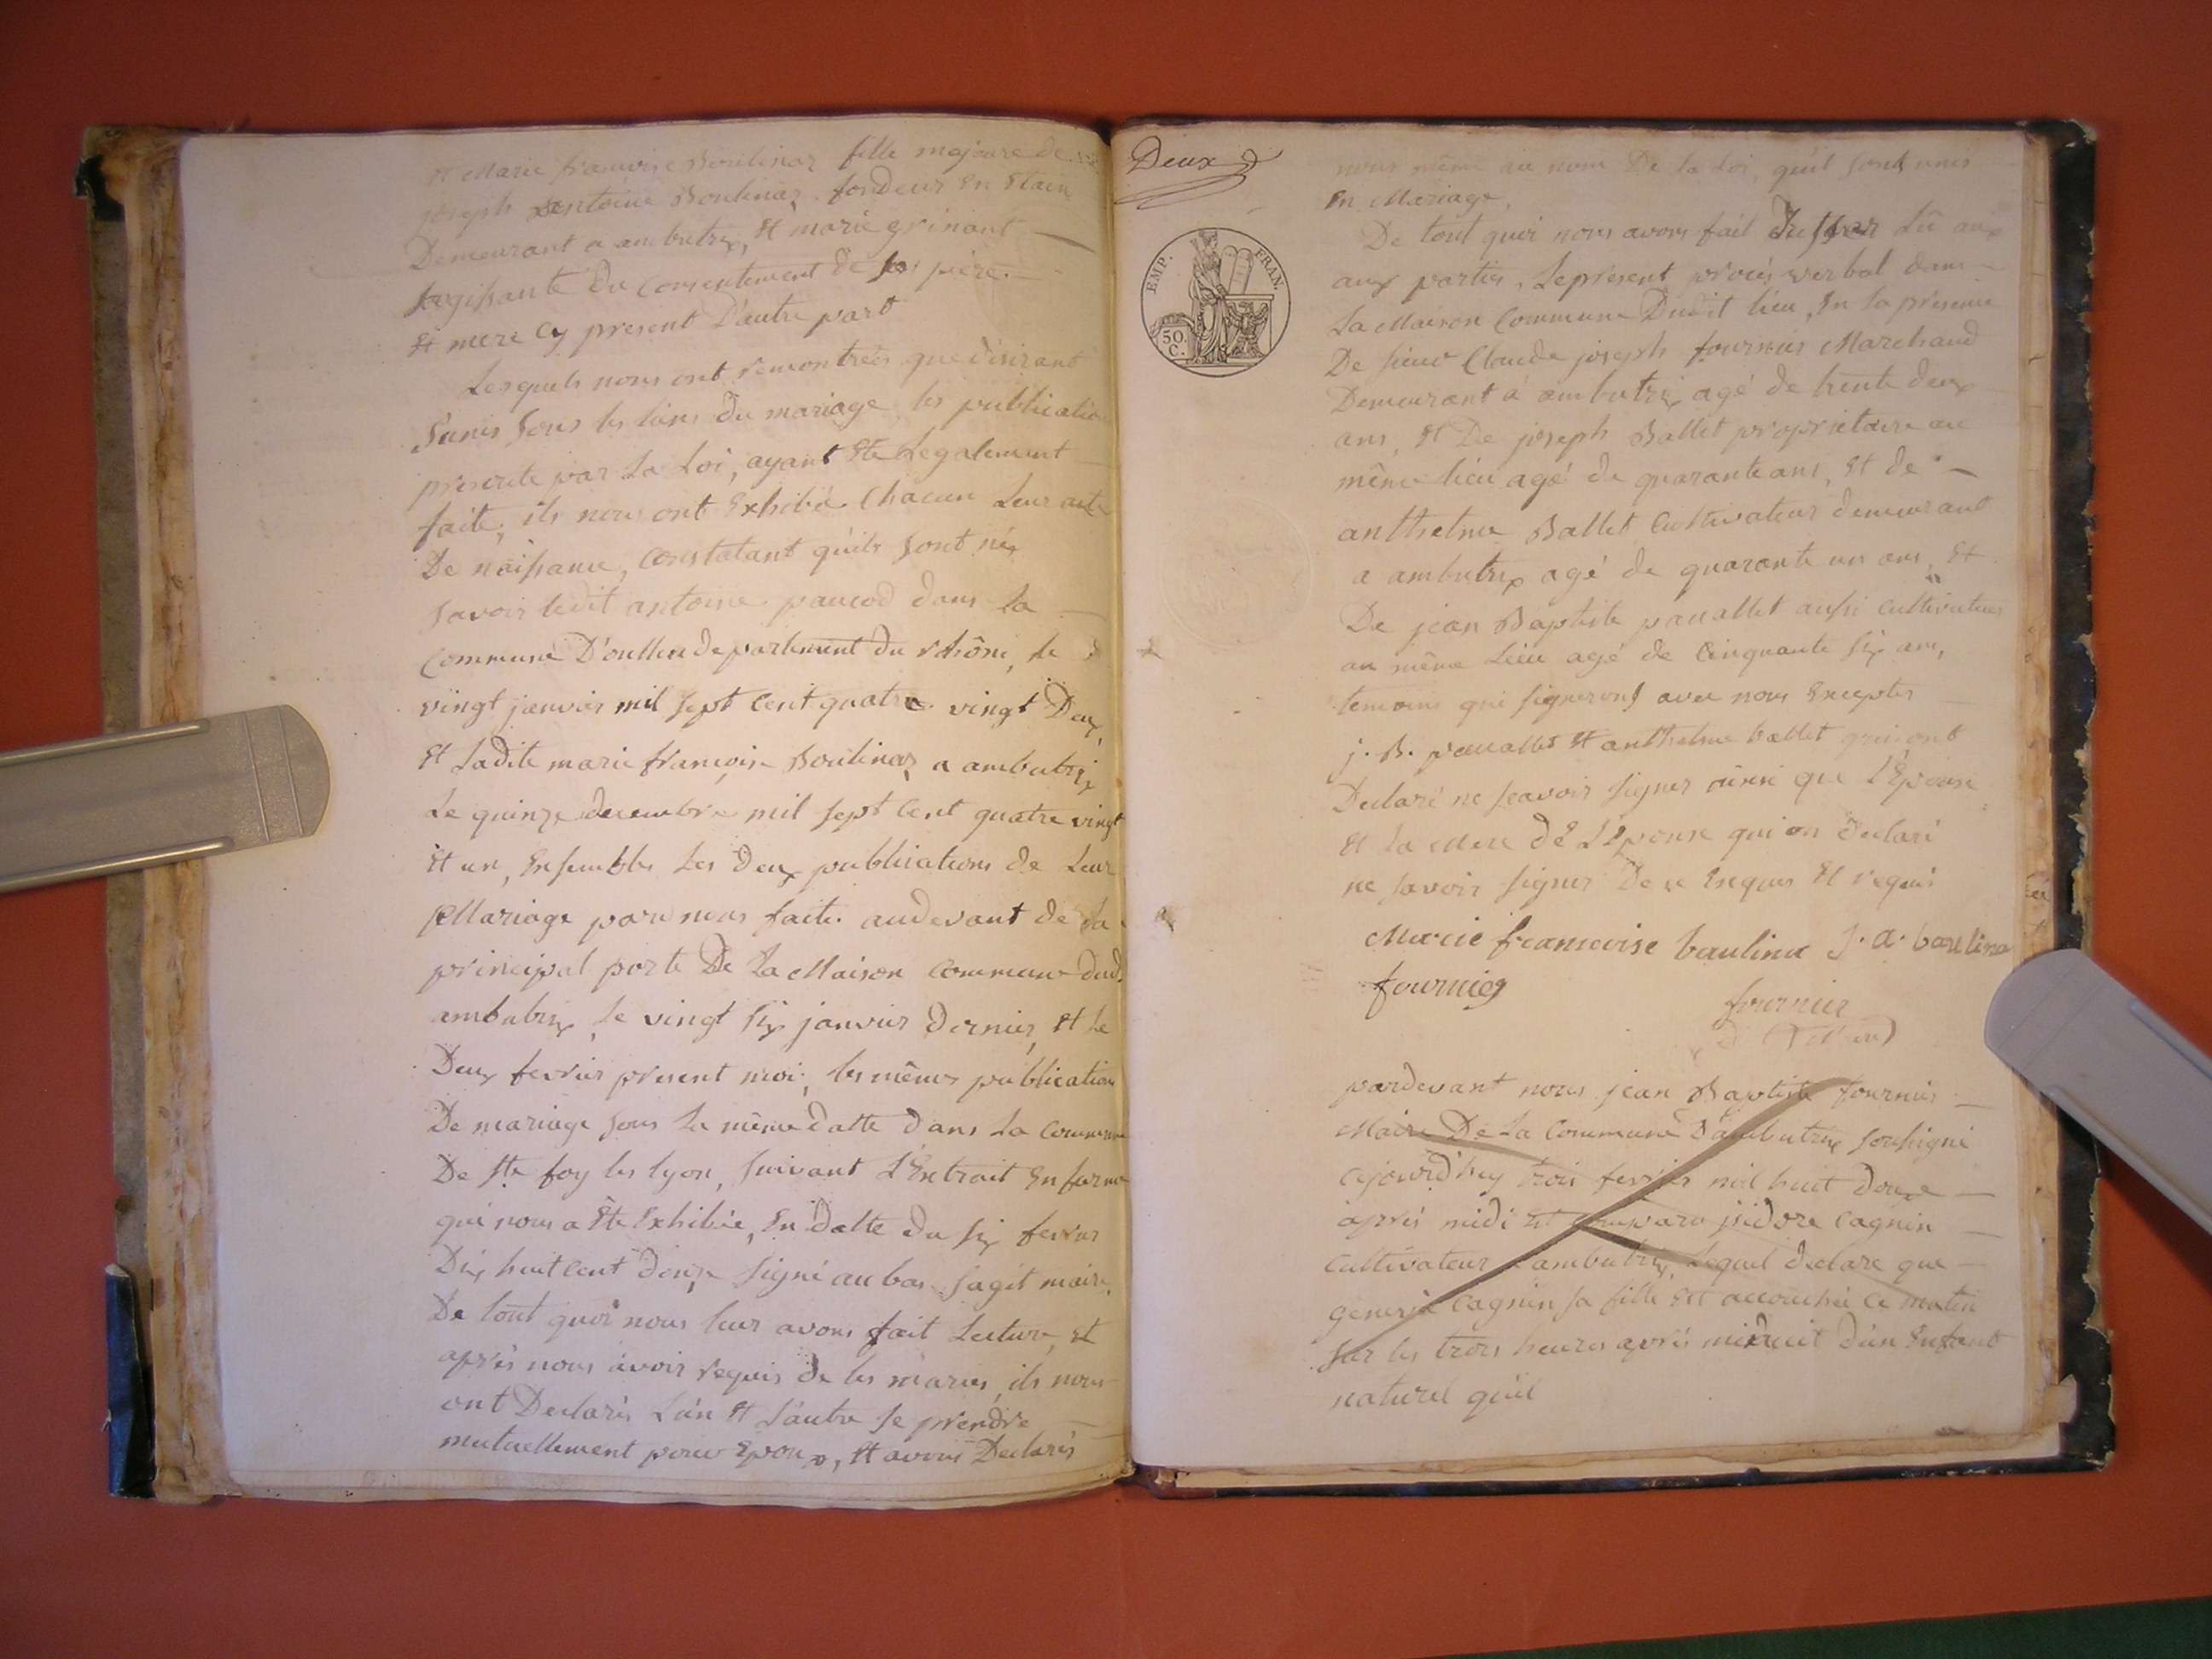 et Marie françoise Boulinaz fille majeure de
joseph antoine Boulinaz fondeur en Etain
Demeurant a ambutrix, et marie grinant
sagissante Du Consentement de ses père
et mere Cy present D'autre part
Lesquels nous ont remontrées que désirant
sunir sous les liens Du mariage, les publication
prescrite par La Loi, ayant Ete Legalement
faite, ils nous ont Exhibé Chacun Leur acte
De naissance, Constatant qu'ils sont nés
savoir ledit antoine paucod dans La
Commune D'oullin departement Du rhône, le
vingt janvier mil sept Cent quatre vingt Deux,
Et Ladite marie françoise Boulinaz a ambutrix
Le quinze decembre mil sept Cent quatre vingt
Et un, Ensembles Les Deux publications de Leur
Mariage par nous faite audevant de La
principal porte De La Maison Commune dud.
ambutrix, le vingt six janvier Dernier, Et Le
Deux fevrier present moi, les mêmes publication
De mariage sous La même datte dans La Commune
De Ste foy les lyon, suivant L'Extrait En forme
qui nous a Ete Exhibée, En datte du six fevrier
Dix huit Cent douze signé au bas Sagit maire.
De tout quoi nous leur avons fait Lecture, Et
après nous avoir requis de les marier, ils nous
ont Declarés L'un Et L'autre se prendre
mutuellement pour Epoux, Et avons Declarés
Deux
EMP. FRAN.
50. C.
nous même au nom De La Loi, qu'il sont unis
En Mariage.
De tout quoi nous avons fait dresser Lû aux
aux parties, Le present procès verbal dans
La Maison Commune Dudit lieu, En la présence
De sieur Claude joseph fournier Marchand
Demeurant à ambutrix agé de trente deux
ans, Et De joseph Ballet propriétaire au
même lieu agé de quarante ans, Et de
anthelme Ballet Cultivateur demeurant
a ambutrix agé de quarante un ans, Et
De jean Baptiste pauallet aussi Cultivateur
au même Lieu agé de Cinquante six ans,
temoins qui signeront avec nous Exceptés
j. B. pauallet Et anthelme ballet qui ont
Declaré ne sçavoir signer ainsi que L'Epouse
Et La Mere de L'Epouse qui on déclaré
ne savoir signer De ce Enquis Et requis
Marie francoise baulina J. a. baulina
fournier
fournier
pardevant nous jean Baptiste fournier
Maire De La Commune d'ambutrix soussigné
Cejourd'huy trois fevrier mil huit douze
après midi Est Comparu jsidore Cagnin
Cultivateur a ambutrix, Lequel declare que
Cagnin sa fille Est accouchée Ce matin
sur les trois heures après minuit d'un Enfant
naturel qu'il